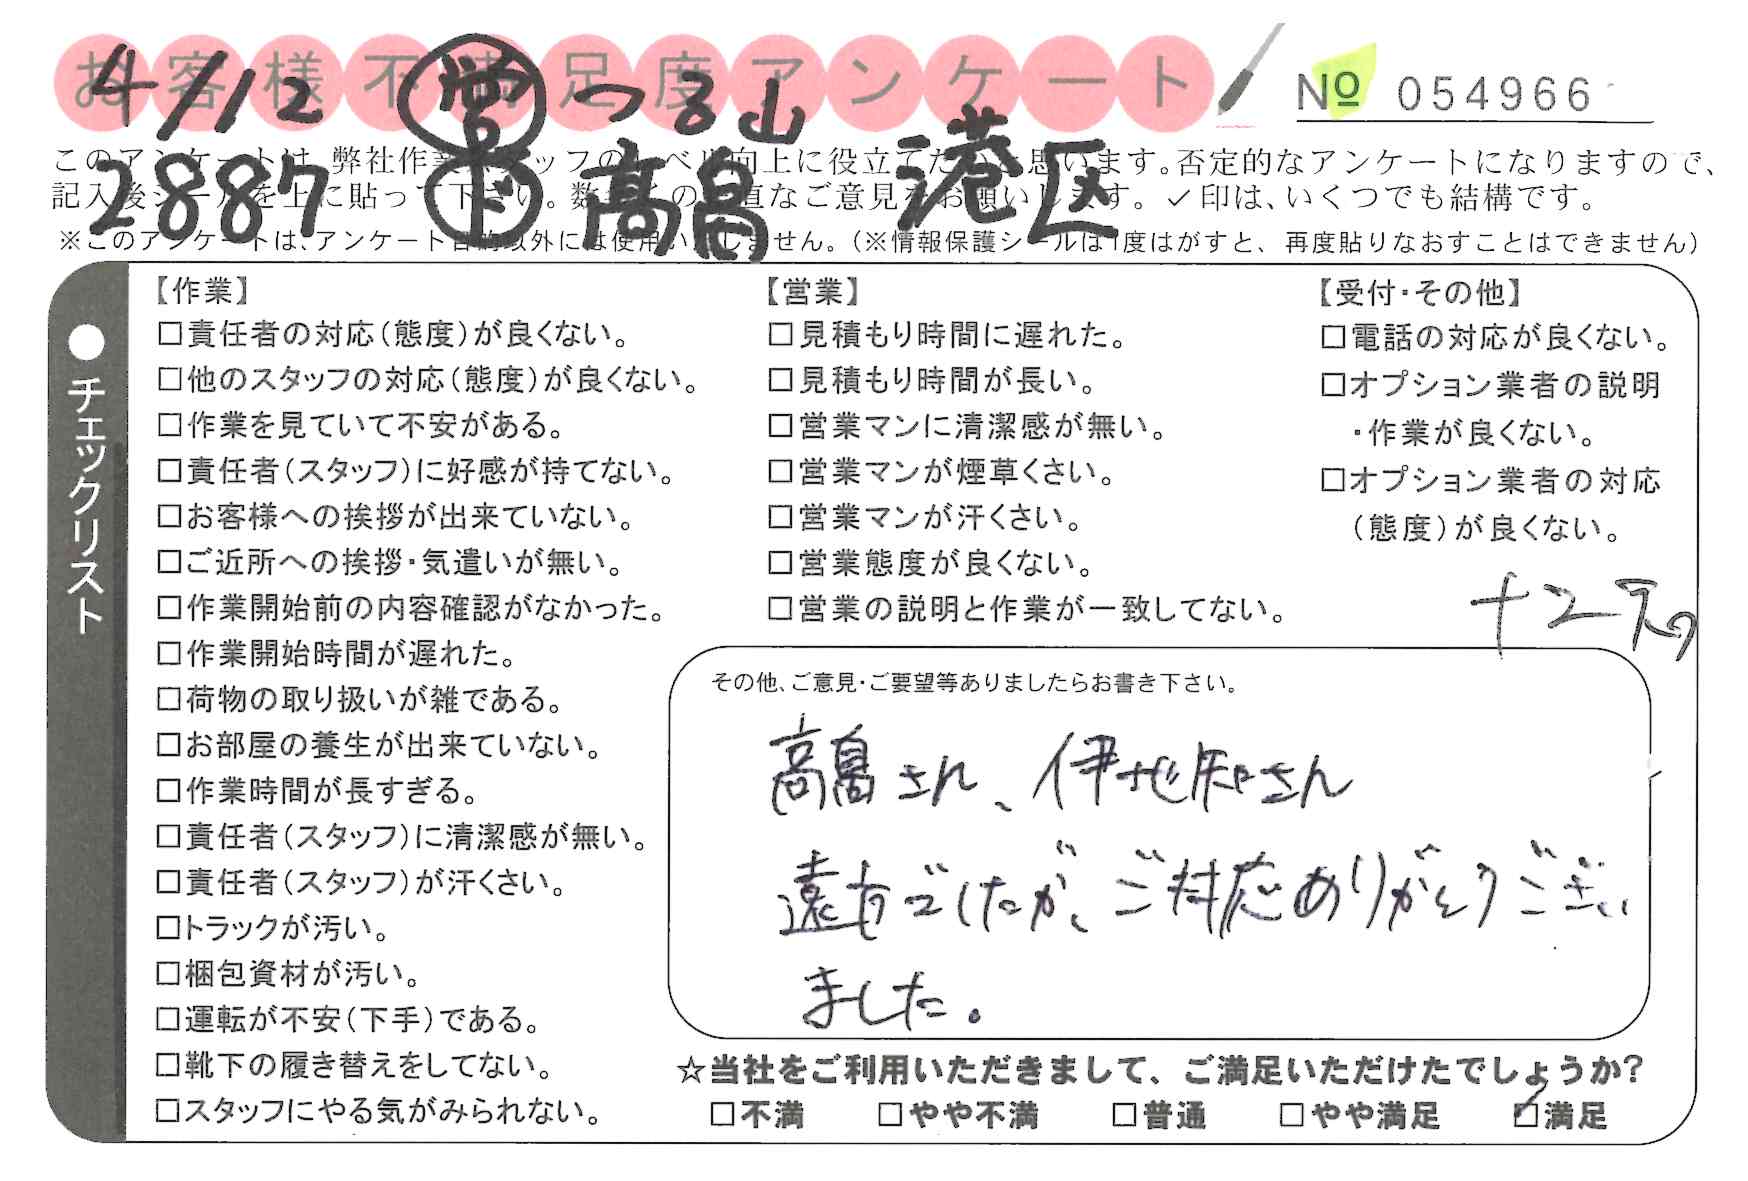 お客様不満足度アンケート
№ 054966
4/12 営 つる山
2887 下 高畠 港区
このアンケートは、弊社作業スタッフのレベル向上に役立てたいと思います。否定的なアンケートになりますので、
記入後シールを上に貼って下さい。数多くの正直なご意見をお願いします。✓印は、いくつでも結構です。
※このアンケートは、アンケート目的以外には使用いたしません。(※情報保護シールは1度はがすと、再度貼りなおすことはできません)
●チェックリスト
【作業】
□責任者の対応(態度)が良くない。
□他のスタッフの対応(態度)が良くない。
□作業を見ていて不安がある。
□責任者(スタッフ)に好感が持てない。
□お客様への挨拶が出来ていない。
□ご近所への挨拶・気遣いが無い。
□作業開始前の内容確認がなかった。
□作業開始時間が遅れた。
□荷物の取り扱いが雑である。
□お部屋の養生が出来ていない。
□作業時間が長すぎる。
□責任者(スタッフ)に清潔感が無い。
□責任者(スタッフ)が汗くさい。
□トラックが汚い。
□梱包資材が汚い。
□運転が不安(下手)である。
□靴下の履き替えをしてない。
□スタッフにやる気がみられない。
【営業】
□見積もり時間に遅れた。
□見積もり時間が長い。
□営業マンに清潔感が無い。
□営業マンが煙草くさい。
□営業マンが汗くさい。
□営業態度が良くない。
□営業の説明と作業が一致してない。
【受付・その他】
□電話の対応が良くない。
□オプション業者の説明
・作業が良くない。
□オプション業者の対応
(態度)が良くない。
その他、ご意見・ご要望等ありましたらお書き下さい。
高畠さん、伊地知さん
遠方でしたが、ご対応ありがとうござい
ました。
☆当社をご利用いただきまして、ご満足いただけたでしょうか?
□不満 □やや不満 □普通 □やや満足 ☑満足